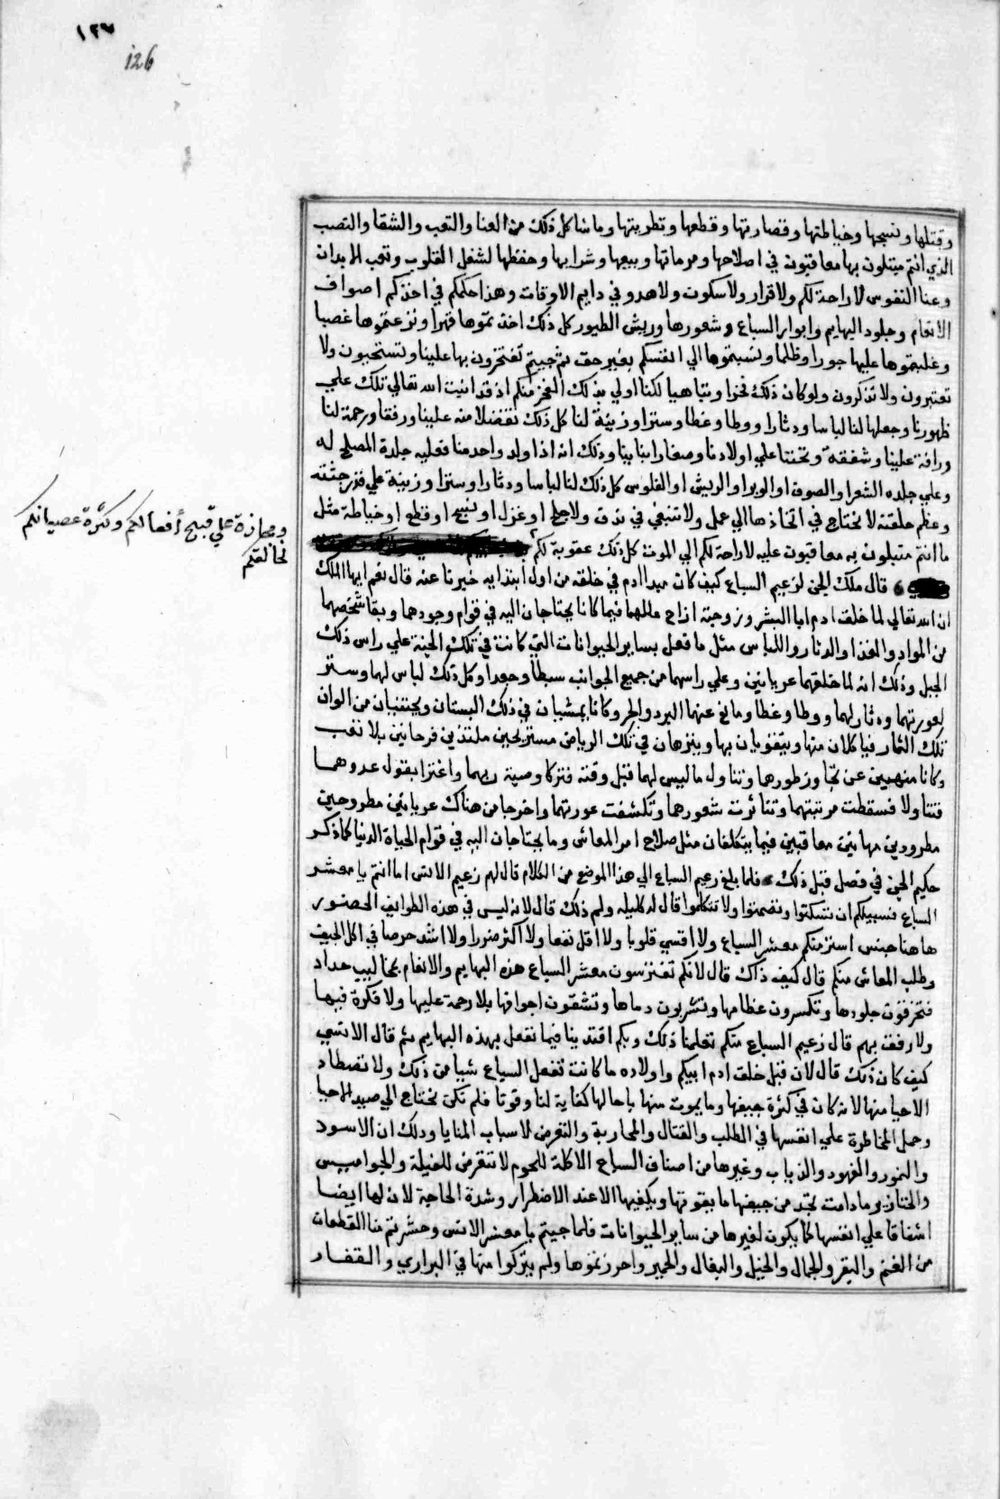 ١٢٦
126
وقتلها ونسجها وخياطتها وقصارتها وقطعها وتطريتها وما شاكل ذلك من العنا والتعب والشقا والنصب
الذي انتم مبتلون بها معاقبون في اصلاحها ومرماتها وبيعها وشرايها وحفظها لشغل القلوب وتعب الابدان
وعنا النفوس لا راحة لكم ولا قرار ولا سكون ولا هدو في دايم الاوقات وهذا حكمكم في اخذكم اصواف
الانعام وجلود البهايم واوبار السباع وشعورها وريش الطيور كل ذلك اخذتموها قهرا ونزعتموها غصبا
وغلبتموها عليها جورا وظلما ونسبتموها الي انفسكم بغير حق ثم جيتم تفتخرون بها علينا وتستحيون ولا
تعتبرون ولا تذكرون ولو كان ذلك فخرا وتباهيا لكنا اولي بذلك الفخر منكم اذ قد انبت الله تعالي تلك علي
ظهورنا وجعلها لنا لباسا ودثارا ووطا وغطا وسترا وزينة لنا كل ذلك تفضلا منه علينا ورفقا ورحمة لنا
ورافة علينا وشفقة وتحننا علي اولادنا وصغار ابنا بينا وذلك انه اذا ولد واحد منا فعليه جلدة المصلح له
وعلي جلده الشعر او الصوف او الوبر او الريش او الفلوس كل ذلك لنا لباسا ودثارا وسترا وزينة علي قدر جثته
وعظم خلقته لا نحتاج في اتخاذها الي عمل ولا تنبغي في ندف ولا حلج او غزل او نسج او قطع او خياطة مثل
ما انتم مبتلون به معاقبون عليه لا راحة لكم الي الموت كل ذلك عقوبة لكم
ومجازة علي قبيح أفعالكم وكثرة عصيانكم
لخالقكم
قال ملك الجن لزعيم السباع كيف كان مبدا ادم في خلقه من اول ابتدايه خبرنا عنه قال نعم ايها الملك
ان الله تعالي لما خلق ادم ابا البشر وزوجته ازاح عللهما فيما كانا يحتاجان اليه في قوام وجودهما وبقا شخصهما
من المواد والغذا والدثار واللباس مثل ما فعل بساير الحيوانات التي كانت في تلك الجنة علي راس ذلك
الجبل وذلك انه لما خلقهما عريانين وعلي راسهما من جميع الجوانب سبطا وجعدا وكل ذلك لباس لهما وستر
لعورتهما ودثار لهما ووطا وغطا ومانع عنهما البرد والحر وكانا يمشيان في ذلك البستان ويجتنيان من الوان
تلك الثمار فياكلان منها ويتقوتان بها ويتنزهان في تلك الرياض مستريحين ملتذين فرحانين بلا تعب
وكانا منهيين عن تجاوز طورهما وتناول ما ليس لهما قبل وقته فتركا وصية ربهما واغترا بقول عدوهما
فتناولا فسقطت مرتبتهما وتناثرت شعورهما وتكشفت عورتهما واخرجا من هناك عريانين مطروحين
مطرودين مهانين معاقبين فيما يتكلفان مثل صلاح امر المعاش وما يحتاجان اليه في قوام الحياة الدنيا كما ذكر
حكيم الجن في فصل قبل ذلك فلما بلغ زعيم السباع الي هذا الموضع من الكلام قال لهم زعيم الانس اما انتم يا معشر
السباع فسبيلكم ان تسكتوا وتصمتوا ولا تتكلموا قال له كليله ولم ذلك قال لانه ليس في هذه الطوايف الحضور
هاهنا جنس اشر منكم معشر السباع ولا اقسي قلوبا ولا اقل نفعا ولا اكثر ضررا ولا اشد حرصا في اكل الجيف
وطلب المعاش منكم قال كيف ذاك قال لانكم تفترسون معشر السباع هذه البهايم والانعام بمخاليب حداد
فتخرقون جلودها وتكسرون عظامها وتشربون دماها وتشقون اجوافها بلا رحمة عليها ولا فكرة فيها
ولا رفق بهم قال زعيم السباع منكم تعلمنا ذلك وبكم اقتدينا فيما نفعل بهذه البهايم ثم قال الانسي
كيف كان ذلك قال لان قبل خلق ادم ابيكم واولاده ما كانت تفعل السباع شيا من ذلك ولا تصطاد
الاحيا منها لانه كان في كثرة جيفها وما يموت منها باجالها كفاية لنا وقوتا فلم تكن نحتاج الي صيد الاحيا
وحمل المخاطرة علي انفسها في الطلب والقتال والمحاربة والتعرض لاسباب المنايا وذلك ان الاسود
والنمور والفهود والذياب وغيرها من اصناف السباع الاكلة للحوم لا تتعرض للفيلة والجواميس
والخنازير ما دامت تجد من جيفها ما يقوتها ويكفيها الا عند الاضطرار وشدة الحاجة لان لها ايضا
اشفاقا علي انفسها كما يكون لغيرها من ساير الحيوانات فلما جيتم يا معشر الانس وحشرتم منا القطعات
من الغنم والبقر والجمال والخيل والبغال والحمير واحرزتموها ولم يتركوا منها في البراري والقفار